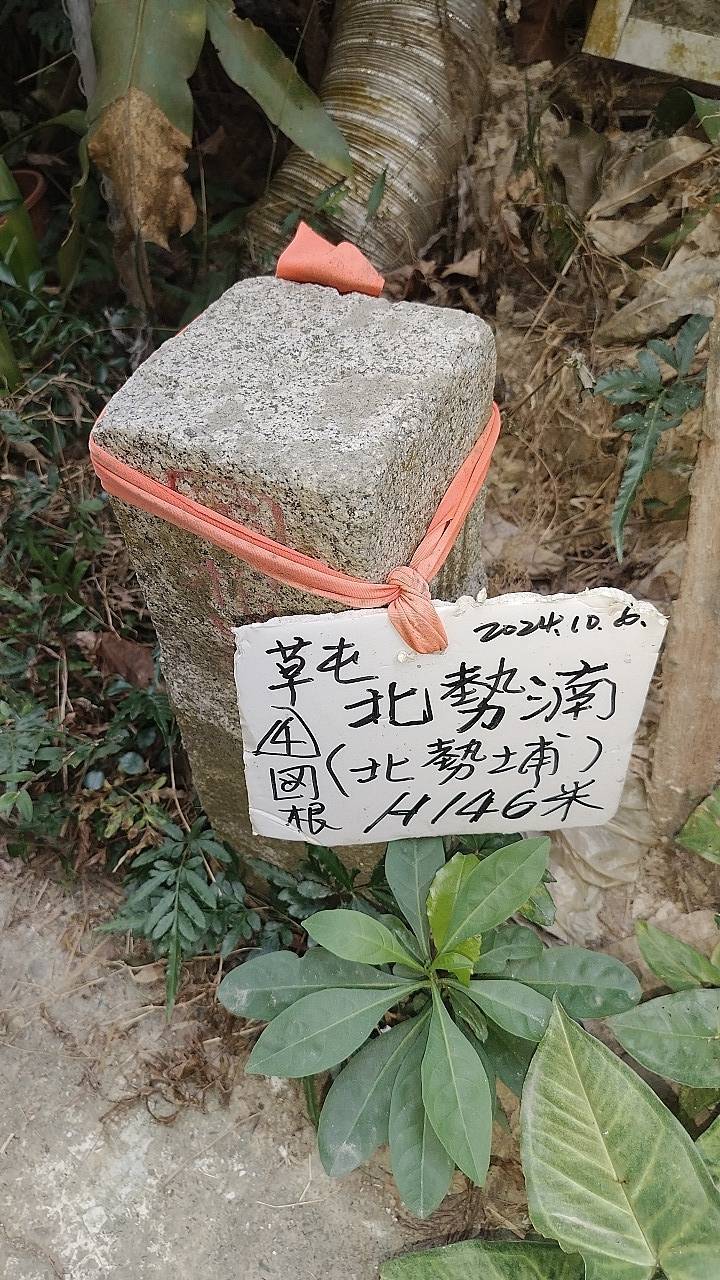 2024.10.6.
草屯 北勢湳
4 図根
(北勢埔)
H146米